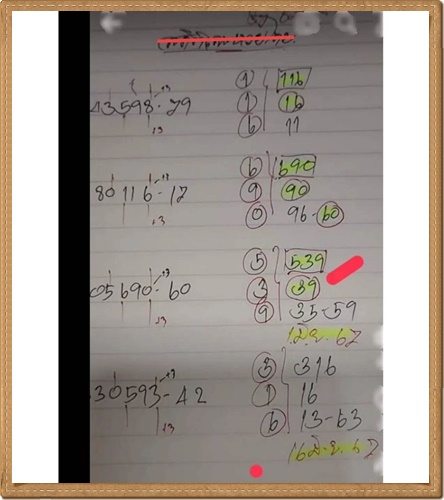 13
43598-79
13
① 116
① 16
⑥ 11
13
80116-17
13
⑥ 690
⑨ 90
⓪ 96-60
13
05690-60
13
⑤ 539
③ 39
⑨ 35-59
1 มิ.ย. 67
13
30593-42
13
③ 316
① 16
⑥ 13-63
16 มิ.ย. 67